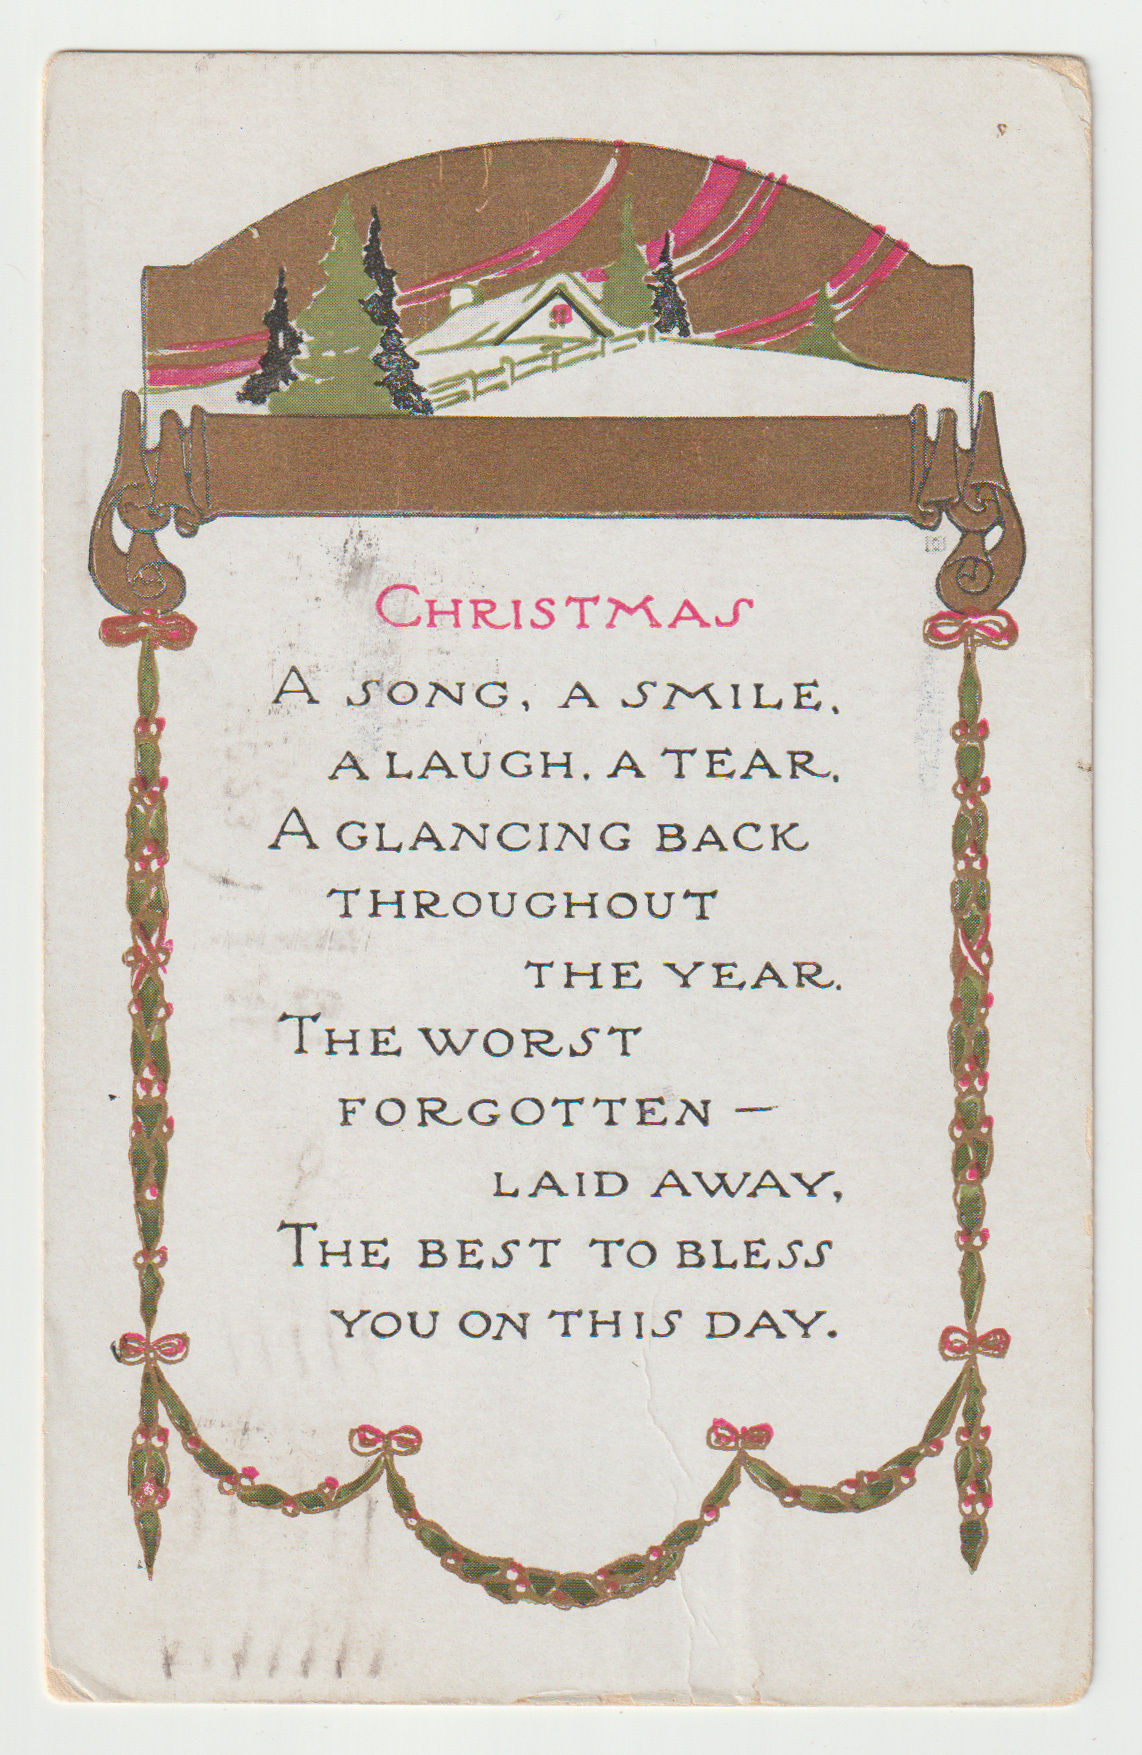 CHRISTMAS
A SONG, A SMILE,
A LAUGH, A TEAR,
A GLANCING BACK
THROUGHOUT
THE YEAR.
THE WORST
FORGOTTEN —
LAID AWAY,
THE BEST TO BLESS
YOU ON THIS DAY.